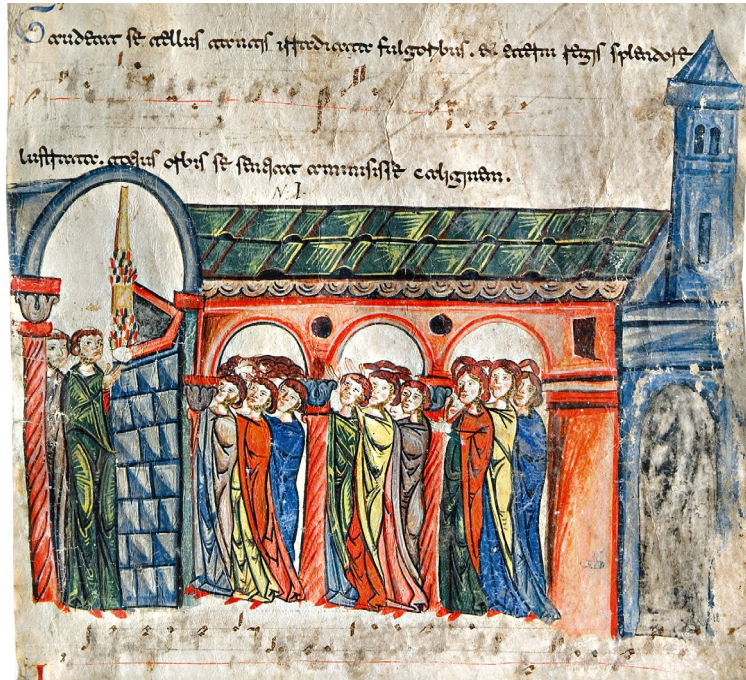 Gaudeat se tellus tantis irradiata fulgoribus. & eterni regis splendore
lustrata. totius orbis se sentiat amisisse caliginem.
N I